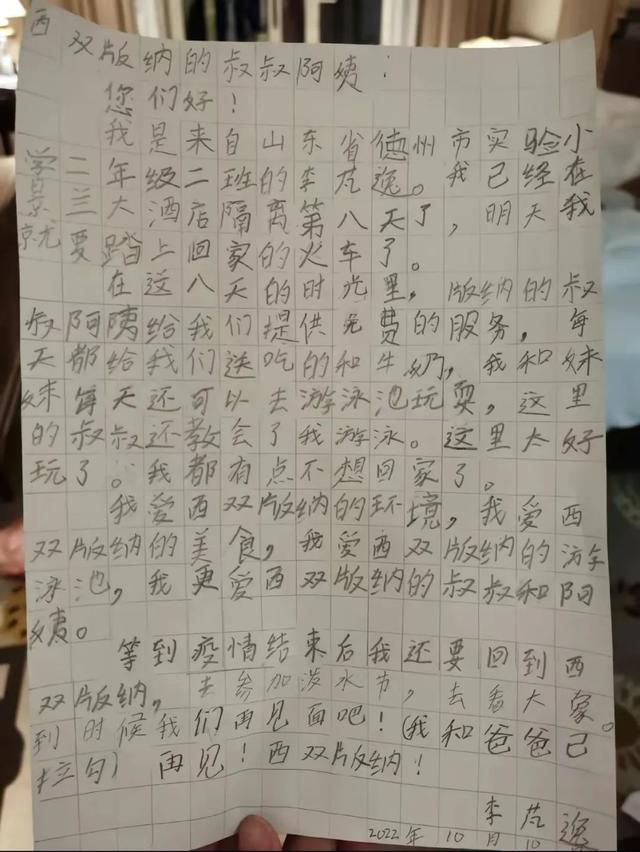 西双版纳的叔叔阿姨：
您们好！
我是来自山东省德州市实验小
学二年级二班的李芃逸。我已经在
景兰大酒店隔离第八天了，明天我
就要踏上回家的火车了。
在这八天的时光里，版纳的叔
叔阿姨给我们提供免费的服务，每
天都给我们送吃的和牛奶，我和妹
妹每天还可以去游泳池玩耍，这里
的叔叔还教会了我游泳。这里太好
玩了。我都有点不想回家了。
我爱西双版纳的环境，我爱西
双版纳的美食，我爱西双版纳的游
泳池，我更爱西双版纳的叔叔和阿
姨。
等到疫情结束后我还要回到西
双版纳，去参加泼水节，去看大象。
到时候我们再见面吧！(我和爸爸已
拉勾）再见！西双版纳！
李芃逸
2022年10月10